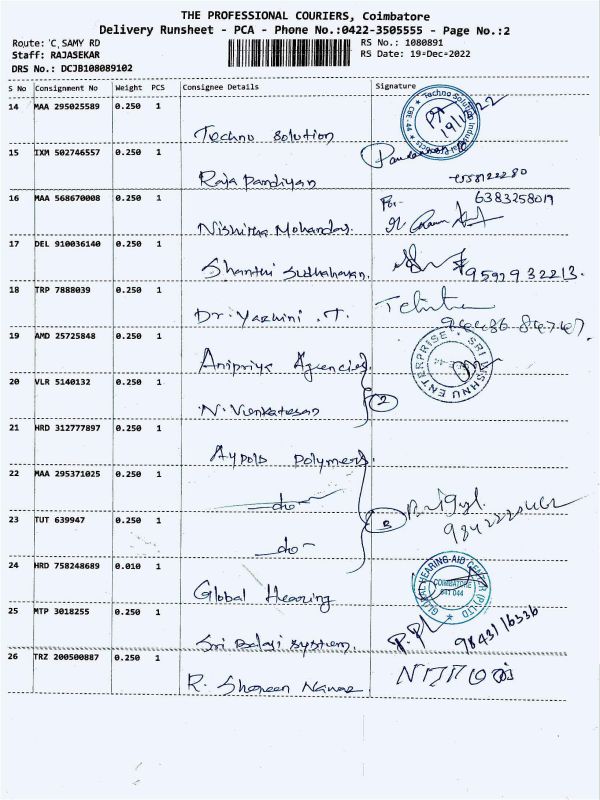 THE PROFESSIONAL COURIERS, Coimbatore
Delivery Runsheet - PCA - Phone No.:0422-3505555 - Page No.:2
Route: C, SAMY RD
RS No.: 1080891
Staff: RAJASEKAR
RS Date: 19-Dec-2022
DRS No.: DCJB108089102
S No Consignment No Weight PCS Consignee Details Signature
14 MAA 295025589 0.250 1
Techno Solution
19/12/22
15 IXM 502746557 0.250 1
Raja Pandiyan
16 MAA 568670008 0.250 1
For- 6383258019
Nishitha Mohandas.
17 DEL 910036140 0.250 1
Shanthi Sudhaharan.
18 TRP 7888039 0.250 1
Dr. Yazhini .T.
19 AMD 25725848 0.250 1
Anipriya Agencies
SRI VISHNU ENTERPRISE
20 VLR 5140132 0.250 1
2
N. Venkatesan
21 HRD 312777897 0.250 1
Aypols Polymers.
22 MAA 295371025 0.250 1
-do-
23 TUT 639947 0.250 1
3
-do-
24 HRD 758248689 0.010 1
Global Hearing
GLOBAL HEARING-AID CENTER (P) LTD
COIMBATORE
641 044
25 MTP 3018255 0.250 1
Sri Balaji System.
9843116336
26 TRZ 200500887 0.250 1